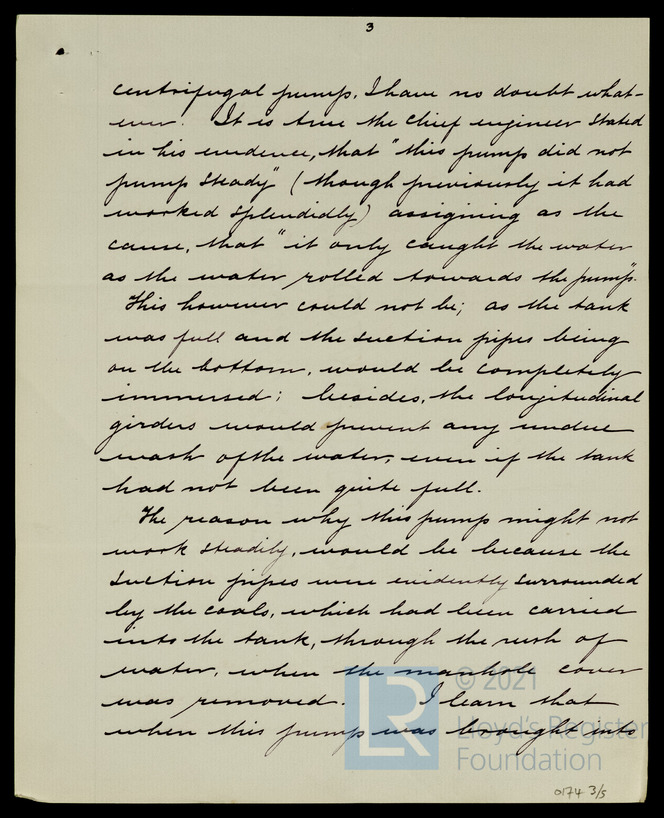 3
centrifugal pump, I have no doubt what-
ever. It is true the chief engineer stated
in his evidence, that "this pump did not
pump steady" (though previously it had
worked splendidly) assigning as the
cause, that "it only caught the water
as the water rolled towards the pump".
This however could not be; as the tank
was full and the suction pipes being
on the bottom, would be completely
immersed; besides, the longitudinal
girders would prevent any undue
wash of the water, even if the tank
had not been quite full.
The reason why this pump might not
work steadily, would be because the
suction pipes were evidently surrounded
by the coals, which had been carried
into the tank, through the rush of
water, when the manhole cover
was removed. I learn that
when this pump was brought into
LR
© 2021
Lloyd's Register
Foundation
0174 3/5